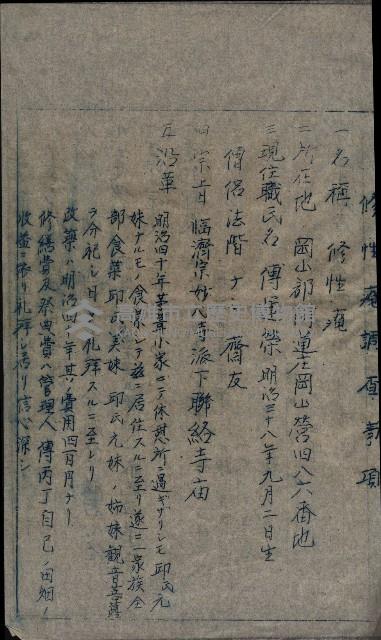 修性庵調查事項
一名稱 修性庵
二所在地 岡山郡 岡山營四八六番地
三現住職氏名 傳 榮 明治三十八年九月二日生
僧侶法階ナシ 齋友
四宗旨 臨濟宗妙心寺派下聯絡寺庙
五沿革 明治四十年茅葺小家ニテ休憩所ニ過ギザリシモ 邱氏元
妹ナルモノ食菜シテ茲ニ居住スルニ至リ遂ニ一家族全
部食菜 邱氏 妹 邱氏元妹ノ姊妹觀音菩薩
ヲ合祀シ日 礼拜スルニ至レリ
改築ハ明治四十 年其ノ費用四百円ナリ
修繕費及祭典費ハ管理人 傳丙丁自己ノ田畑ノ
收益ニ依リ礼拜シ居リ信心深シ
高雄市立歷史博物館